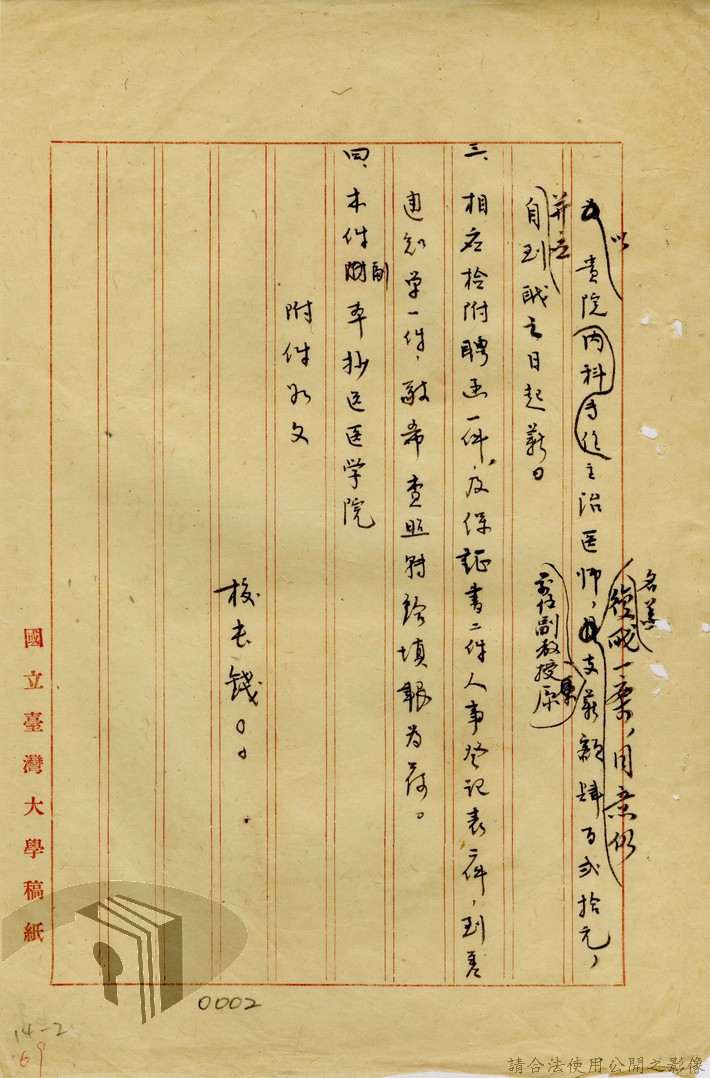 名義
復職一案，同意仍
以
貴院內科專任主治医师，支薪額肆百貳拾元，
并立
專任副教授原
自到职之日起薪。
三、相应检附聘函一件，及保証書二件人事登記表二件，到差
通知单一件，敬希查照轉給填報為荷。
四、本件副本抄送医学院
附件如文
校長錢○○
國立臺灣大學稿紙
0002
14-2
69
請合法使用公開之影像